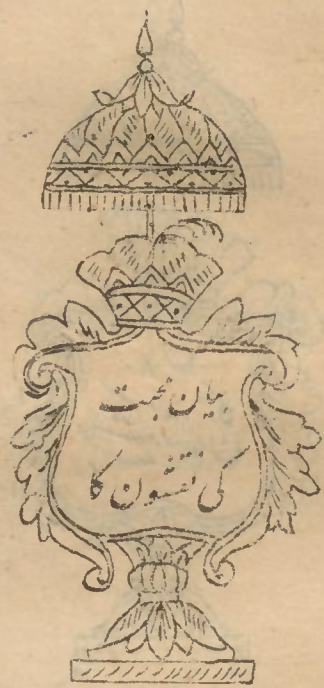 بیان محبت
کی نقشون کا